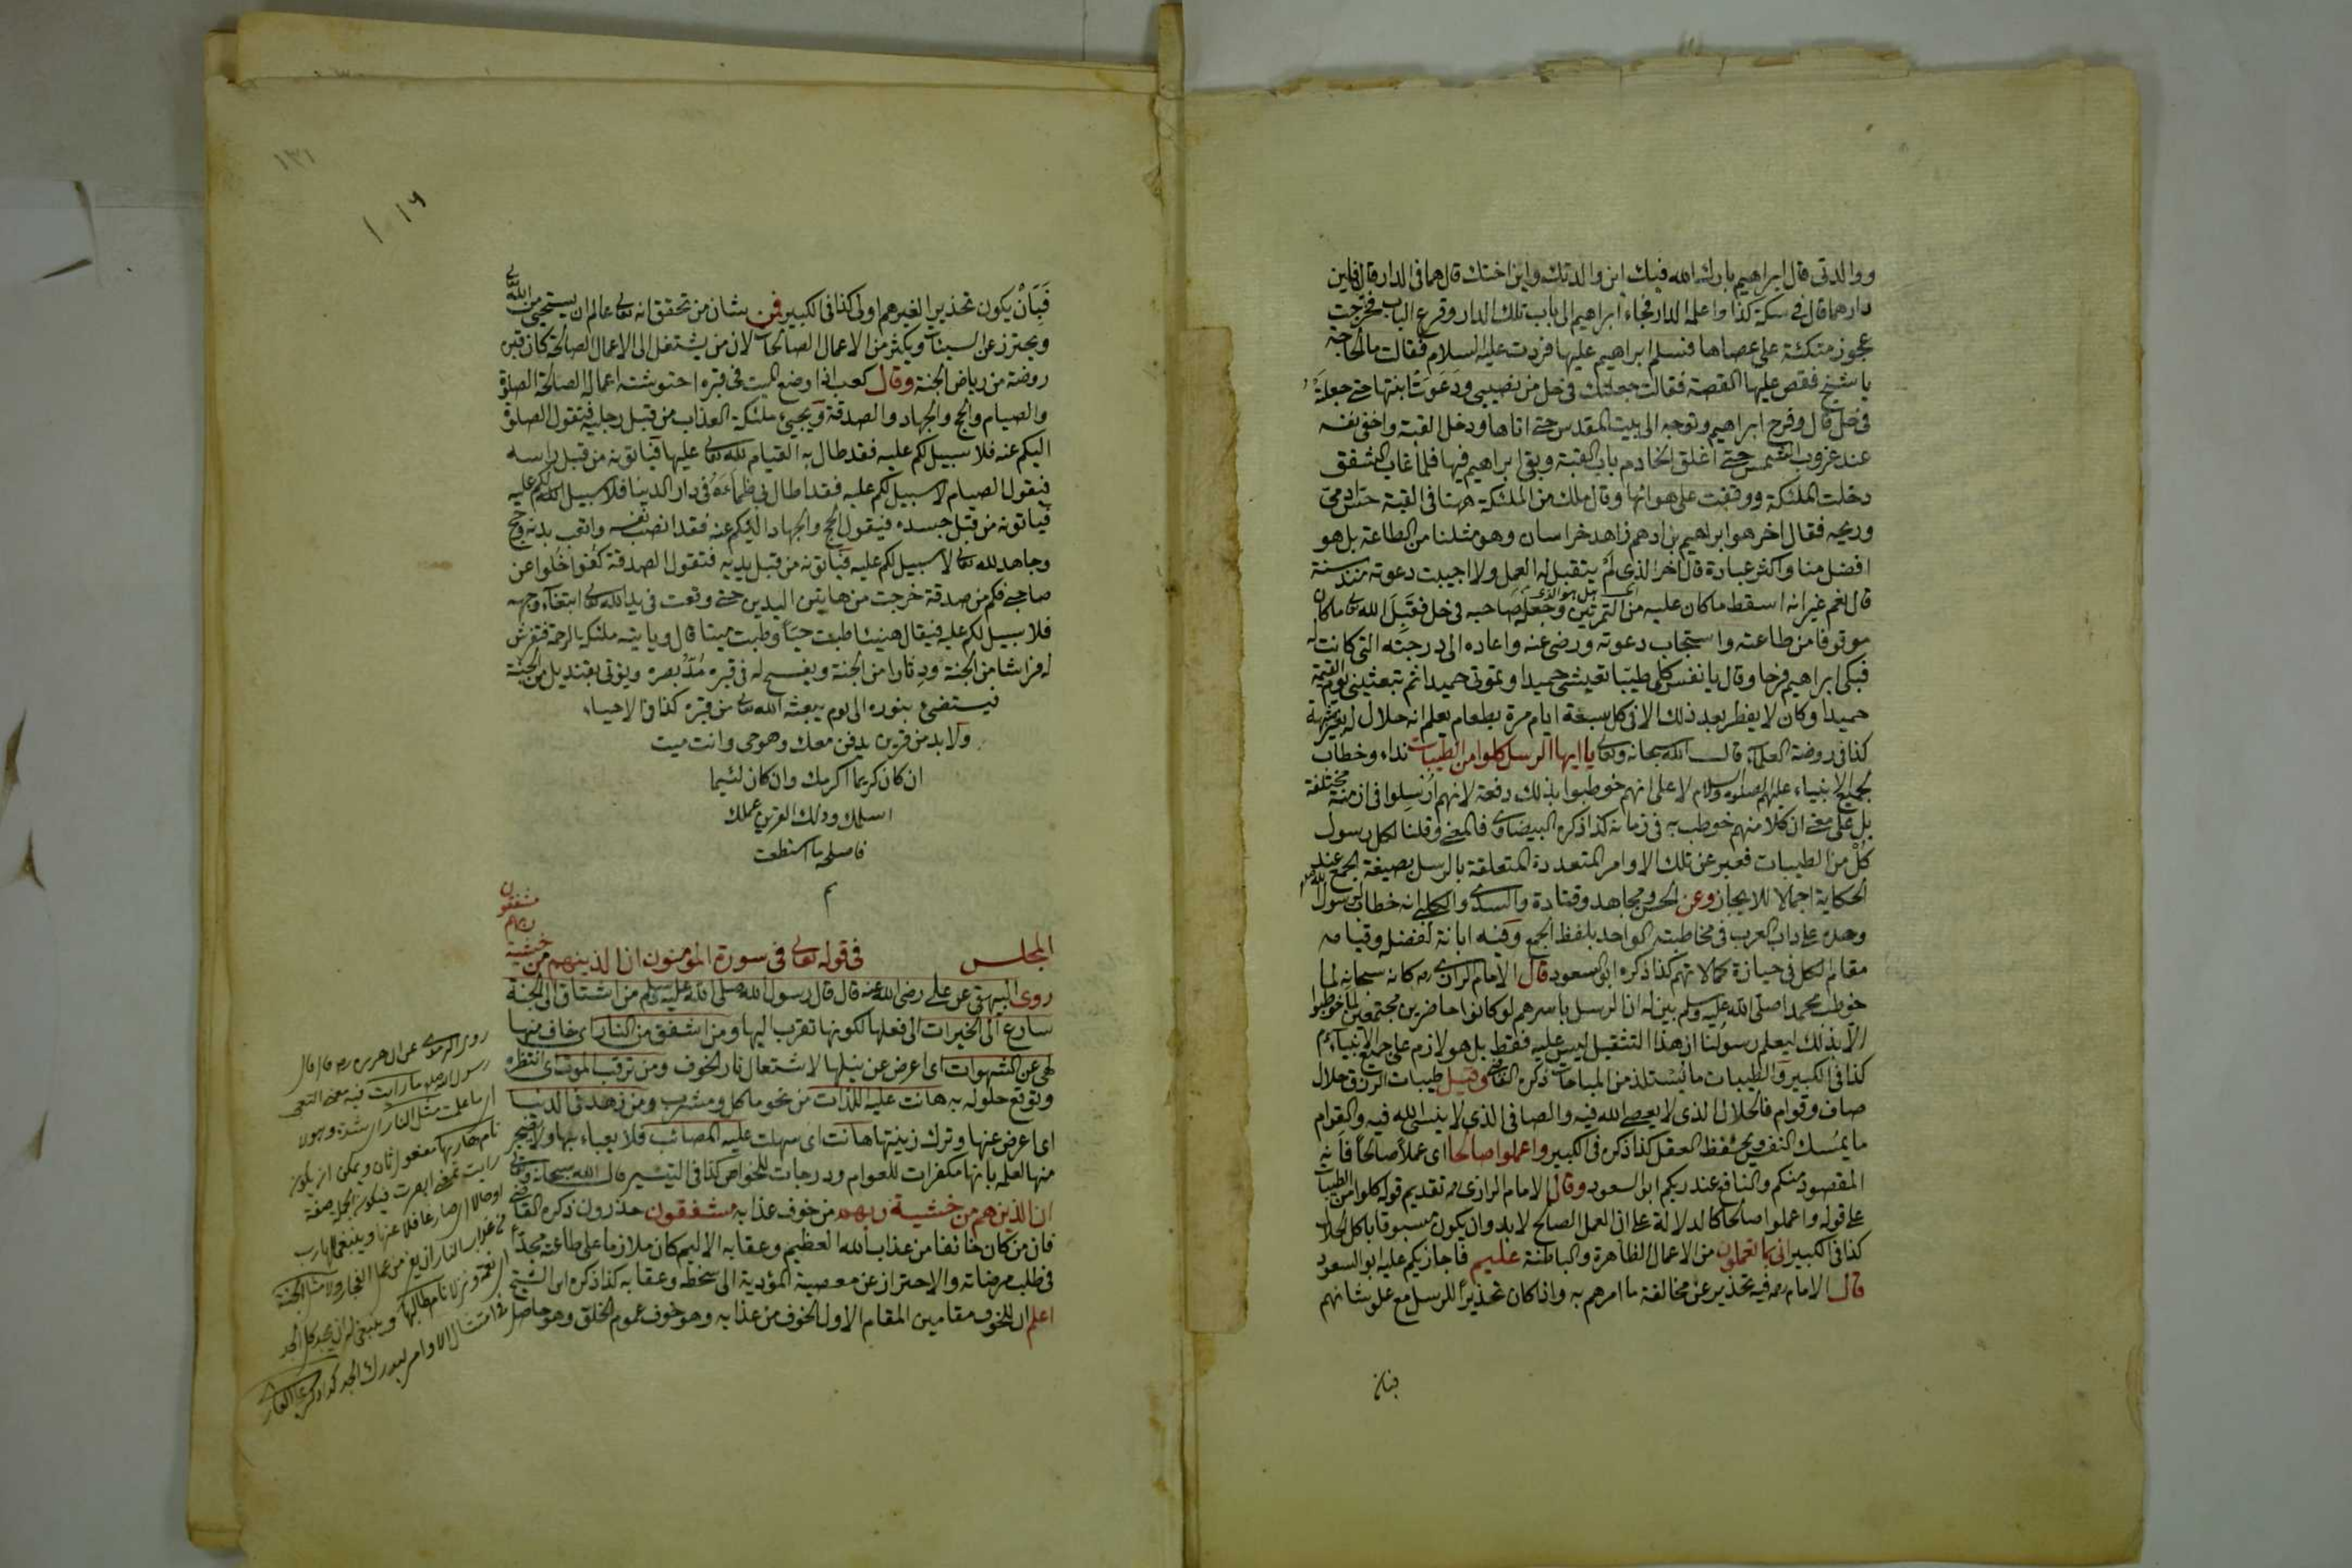 ووالدتي قال ابراهيم بارك الله فيك اين والدتك واين اختك قال هما في الدار قال فاين
دارهما قال في سكة كذا واعلمه الدار فجاء ابراهيم الى باب تلك الدار وقرع الباب فخرجت
عجوز متكئة على عصاها فسلم ابراهيم عليها فردت عليه السلام فقالت ما الحاجة
يا شيخ فقص عليها القصة فقالت جعلتك في حل من نصيبي ودعوت ابنتها حتى جعلته
في حل قال وفرح ابراهيم وتوجه الى بيت المقدس حتى اتاها ودخل القبة واخفى نفسه
عند غروب الشمس حتى اغلق الخادم باب القبة وبقي ابراهيم فيها فلما غاب الشفق
دخلت الملئكة ووقفت على هوائها وقال ملك من الملئكة ههنا في القبة حس ادمي
وريحه فقال اخر هو ابراهيم بن ادهم زاهد خراسان وهو مثلنا من الطاعة بل هو
افضل منا واكثر عبادة قال اخر الذي لم يتقبل له العمل ولا اجيبت دعوته منذ سنة
اي بل هو الذي
قال نعم غير انه اسقط ما كان عليه من التمرتين وجعله صاحبه في حل فقبل الله تعالى ما كان
موقوفا من طاعته واستجاب دعوته ورضي عنه واعاده الى درجته التي كانت له
فبكى ابراهيم فرحا وقال يا نفس كلي طيبا تعيشي حميدا وتموتي حميدا ثم تبعثيني يوم القيمة
حميدا وكان لا يفطر بعد ذلك الا في كل سبعة ايام مرة بطعام يعلم انه حلال
كذا في روضة العلماء قال الله سبحانه وتعالى يا ايها الرسل كلوا من الطيبات نداء وخطاب
لجميع الانبياء عليهم الصلوة والسلام لا على انهم خوطبوا بذلك دفعة لانهم ارسلوا في ازمنة مختلفة
بل على معنى ان كلا منهم خوطب به في زمانه كذا ذكره البيضاوي فالمعنى وقلنا لكل رسول
كل من الطيبات فعبر عن تلك الاوامر المتعددة المتعلقة بالرسل بصيغة الجمع عند
الحكاية اجمالا للايجاز وعن الحسن ومجاهد وقتادة والسدي والكلبي انه خطاب لرسول الله
وحده على داب العرب في مخاطبته الواحد بلفظ الجمع وفيه ابانة لفضله وقيامه
مقام الكل في حيازة كمالاتهم كذا ذكره ابو السعود قال الامام الرازي ره كانه سبحانه لما
خوطب محمدا صلى الله عليه وسلم بين له ان الرسل باسرهم لو كانوا حاضرين مجتمعين لما خوطبوا
الا بذلك ليعلم رسولنا ان هذا التثقيل ليس عليه فقط بل هو لازم على جميع الانبياء
كذا في الكبير والطيبات ما يستلذ من المباحات ذكره القاضي وقيل طيبات الرزق حلال
صاف وقوام فالحلال الذي لا يعصى الله فيه والصافي الذي لا ينسى الله فيه والقوام
ما يمسك النفس ويحفظ العقل كذا ذكره في الكبير واعملوا صالحا اي عملا صالحا فانه
المقصود منكم والنافع عند ربكم ابو السعود وقال الامام الرازي ره تقديم قوله كلوا من الطيبات
على قوله واعملوا صالحا كالدلالة على ان العمل الصالح لا بد وان يكون مسبوقا باكل الحلال
كذا في الكبير اني بما تعملون من الاعمال الظاهرة والباطنة عليم فاجازيكم عليه ابو السعود
قال الامام ره فيه تحذير عن مخالفة ما امرهم به واذا كان تحذيرا للرسل مع علو شانهم
فبان
١٣١
فبان يكون تحذير الغيرهم اولى كذا في الكبير فمن شان من تحقق انه تعالى عالم ان يستحيي من الله تعالى
ويحترز عن السيئات ويكثر من الاعمال الصالحات لان من يشتغل الى الاعمال الصالحة كان قبره
روضة من رياض الجنة وقال كعب اذا وضع الميت في قبره احتوشته اعماله الصالحة الصلوة
والصيام والحج والجهاد والصدقة ويجيئ ملئكة العذاب من قبل رجليه فتقول الصلوة
اليكم عنه فلا سبيل لكم عليه فقد طال به القيام لله تعالى عليها فياتونه من قبل راسه
فيقول الصيام لا سبيل لكم عليه فقد اطال بي ظماءه في دار الدنيا فلا سبيل لكم عليه
فياتونه من قبل جسده فيقول الحج والجهاد اليكم عنه فقد انصب نفسه واتعب بدنه وحج
وجاهد لله تعالى لا سبيل لكم عليه فياتونه من قبل يديه فتقول الصدقة كفوا خلوا عن
صاحبي فكم من صدقة خرجت من هاتين اليدين حتى وقعت في يد الله تعالى ابتغاء وجهه
فلا سبيل لكم عليه فيقال هنيئا طبت حيا وطبت ميتا قال وياتيه ملئكة الرحمة فتفرش
له فراشا من الجنة ودثارا من الجنة ويفسح له في قبره مد بصره ويؤتى بقنديل من الجنة
فيستضئ بنوره الى يوم يبعثه الله تعالى من قبره كذا في الاحياء
ولا بد من قرين يدفن معك وهو حي وانت ميت
ان كان كريما اكرمك وان كان لئيما
اسلمك وذلك القرين عملك
فاصلحه ما استطعت
م
المجلس في قوله تعالى في سورة المؤمنون ان الذينهم من خشية ربهم مشفقون
روى البيهقي عن علي رضي الله عنه قال قال رسول الله صلى الله عليه وسلم من اشتاق الى الجنة
سارع الى الخيرات الى فعلها لكونها تقرب اليها ومن اشفق من النار اي خاف منها
لهى عن الشهوات اي اعرض عن نيلها لاشتعال نار الخوف ومن ترقب الموت اي انتظره
وتوقع حلوله به هانت عليه اللذات من نحو ماكل ومشرب ومن زهد في الدنيا
اي اعرض عنها وترك زينتها هانت اي سهلت عليه المصائب فلا يعباء بها ولا يضجر
منها لعلمه بانها مكفرات للعوام ودرجات للخواص كذا في التيسير قال الله سبحانه وتعالى
ان الذين هم من خشية ربهم من خوف عذابه مشفقون حذرون ذكره القاضي
فان من كان خائفا من عذاب الله العظيم وعقابه الاليم كان ملازما على طاعته مجدا
في طلب مرضاته والاحتراز عن معصية المؤدية الى سخطه وعقابه كذا ذكره ابن الشيخ
اعلم ان للخوف مقامين المقام الاول الخوف من عذابه وهو خوف عموم الخلق وهو حاصل
روى الترمذي عن ابي هريرة ره قال قال
رسول الله صلعم ما رايت فيه معنى التعجب
اي ما علمت مثل النار اي شدة وهولا
نام هاربها مفعول ثان ويمكن ان يكون
رايت بمعنى ابصرت فيكون الجملة صفة